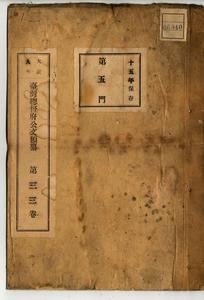 十五年保存
第五門
大正
九年
臺灣總督府公文類纂
第三三卷